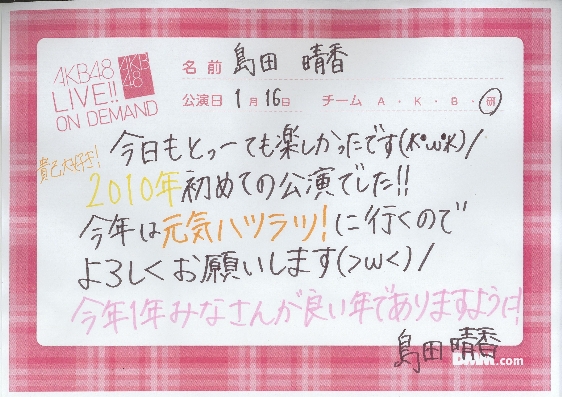 AKB48
LIVE!!
ON DEMAND
AKB
48
名前 島田 晴香
公演日 1月16日 チーム A・K・B・研
今日もとっーても楽しかったです(K•ω•K)/
2010年初めての公演でした!!
今年は元気ハツラツ!に行くので
よろしくお願いします(>ω<)/
今年1年みなさんが良い年でありますように!
島田 晴香
DMM.com